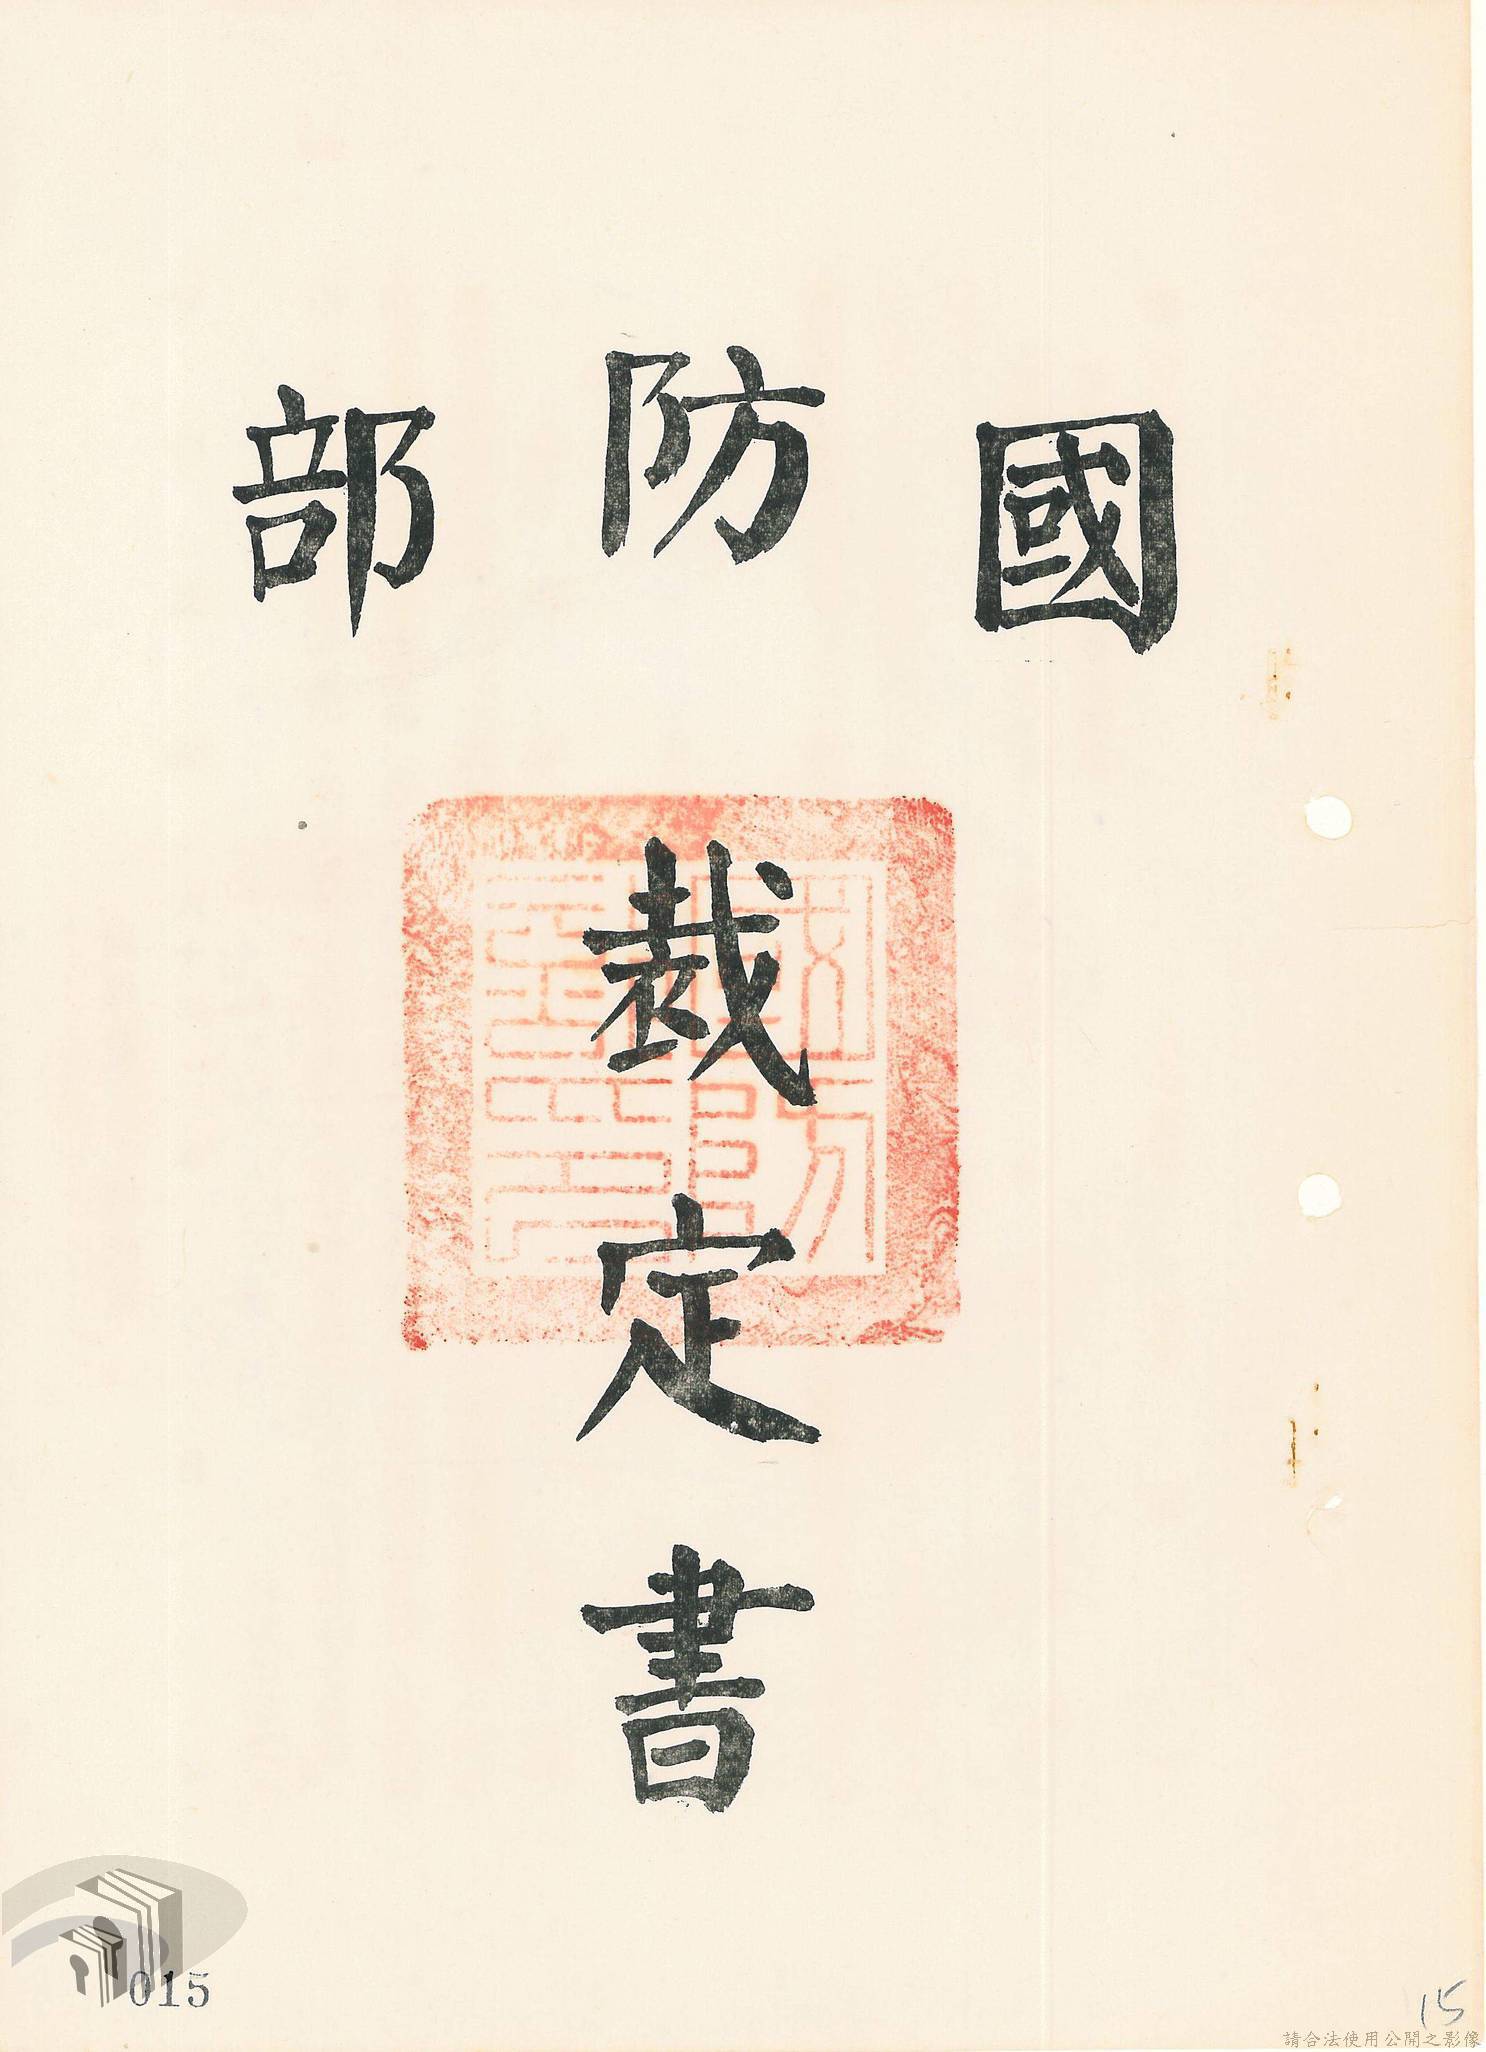 國防部
裁定書
015
15
請合法使用公開之影像